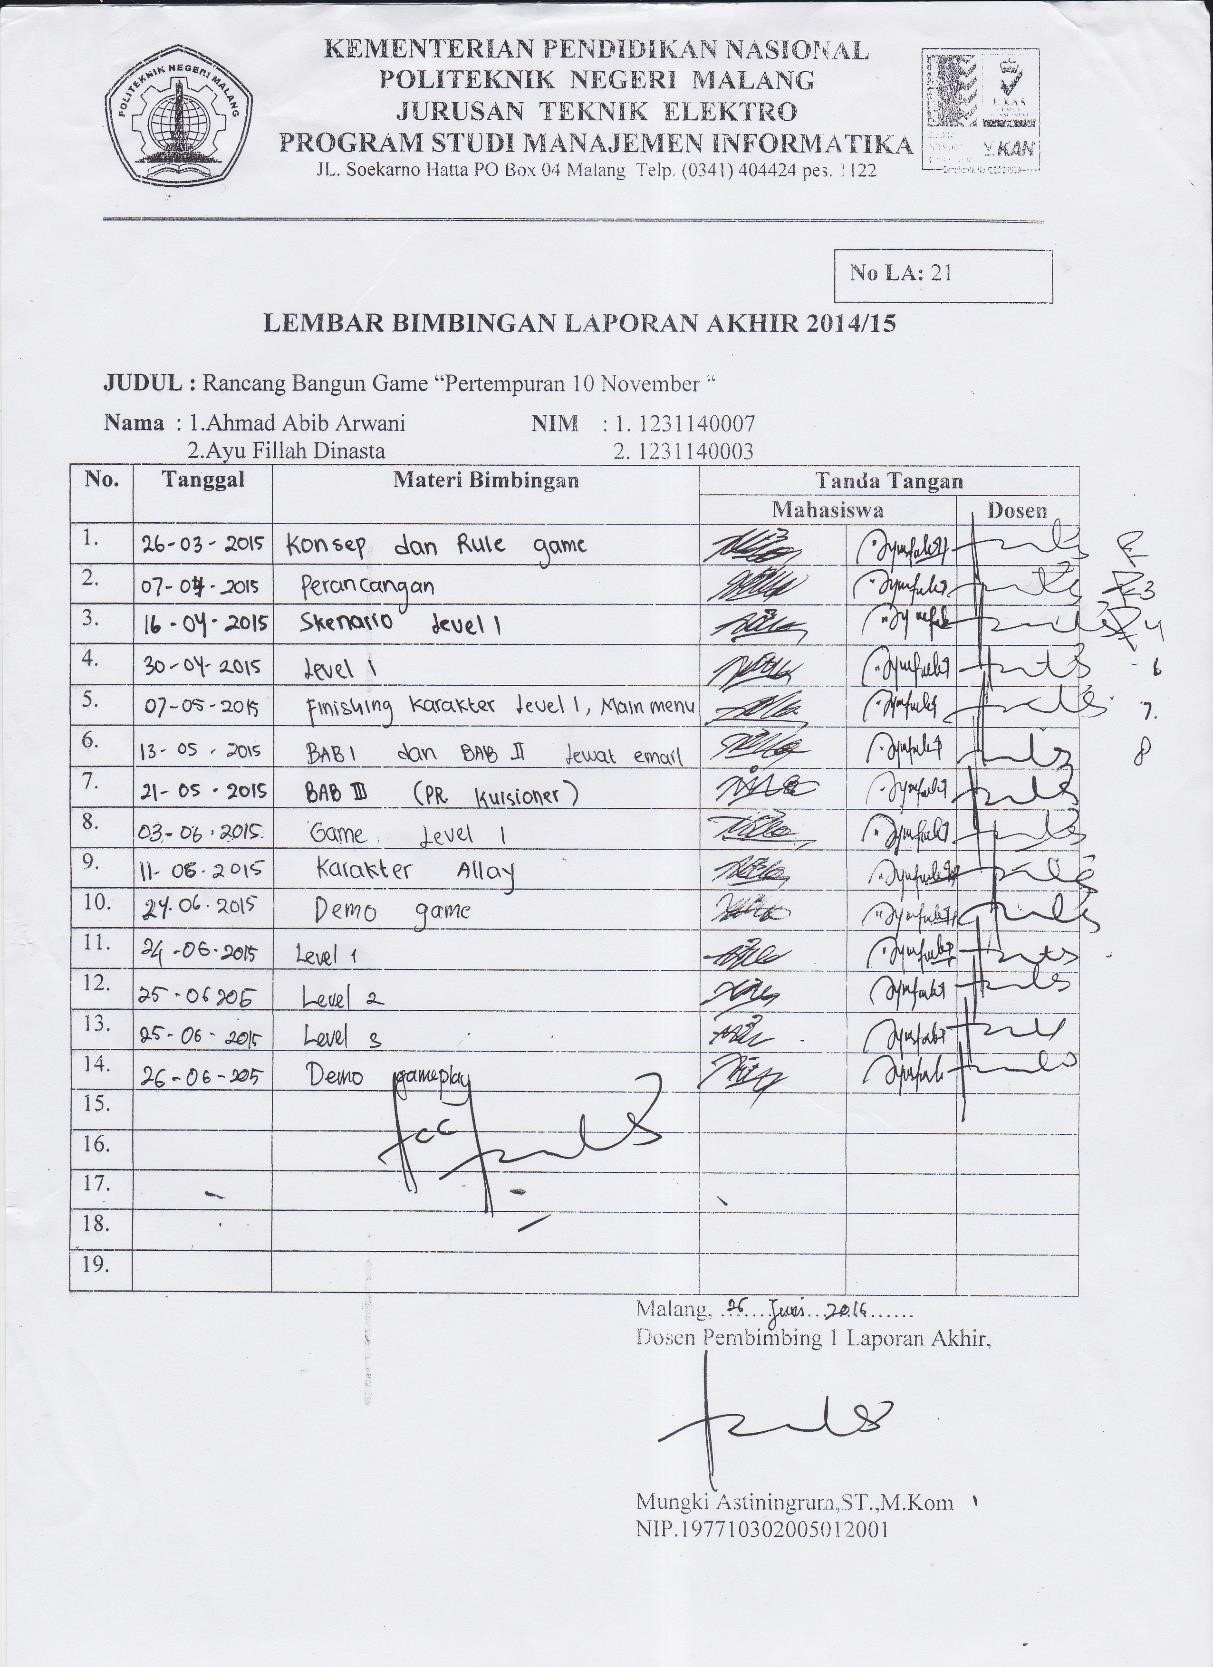 POLITEKNIK NEGERI MALANG
KEMENTERIAN PENDIDIKAN NASIONAL
POLITEKNIK NEGERI MALANG
JURUSAN TEKNIK ELEKTRO
PROGRAM STUDI MANAJEMEN INFORMATIKA
JL. Soekarno Hatta PO Box 04 Malang Telp. (0341) 404424 pes. 1122
UKAS
KAN
No LA: 21
LEMBAR BIMBINGAN LAPORAN AKHIR 2014/15
JUDUL : Rancang Bangun Game “Pertempuran 10 November “
Nama : 1.Ahmad Abib Arwani NIM : 1. 1231140007
2.Ayu Fillah Dinasta 2. 1231140003
No. Tanggal Materi Bimbingan Tanda Tangan
Mahasiswa Dosen
1. 26-03-2015 Konsep dan Rule game
2. 07-04-2015 Perancangan 3
3. 16-04-2015 Skenario Level 1 4
4. 30-04-2015 Level 1 6
5. 07-05-2015 Finishing Karakter Level 1, Main menu 7.
6. 13-05-2015 BAB I dan BAB II Lewat email 8
7. 21-05-2015 BAB III (PR Kuisioner)
8. 03-06-2015. Game Level 1
9. 11-06-2015 Karakter Allay
10. 24.06.2015 Demo game
11. 24-06-2015 Level 1
12. 25-06 2015 Level 2
13. 25-06-2015 Level 3
14. 26-06-205 Demo gameplay
15.
acc
16.
17.
18.
19.
Malang, 26 Juni 2015
Dosen Pembimbing 1 Laporan Akhir,
Mungki Astiningrum,ST.,M.Kom
NIP.197710302005012001